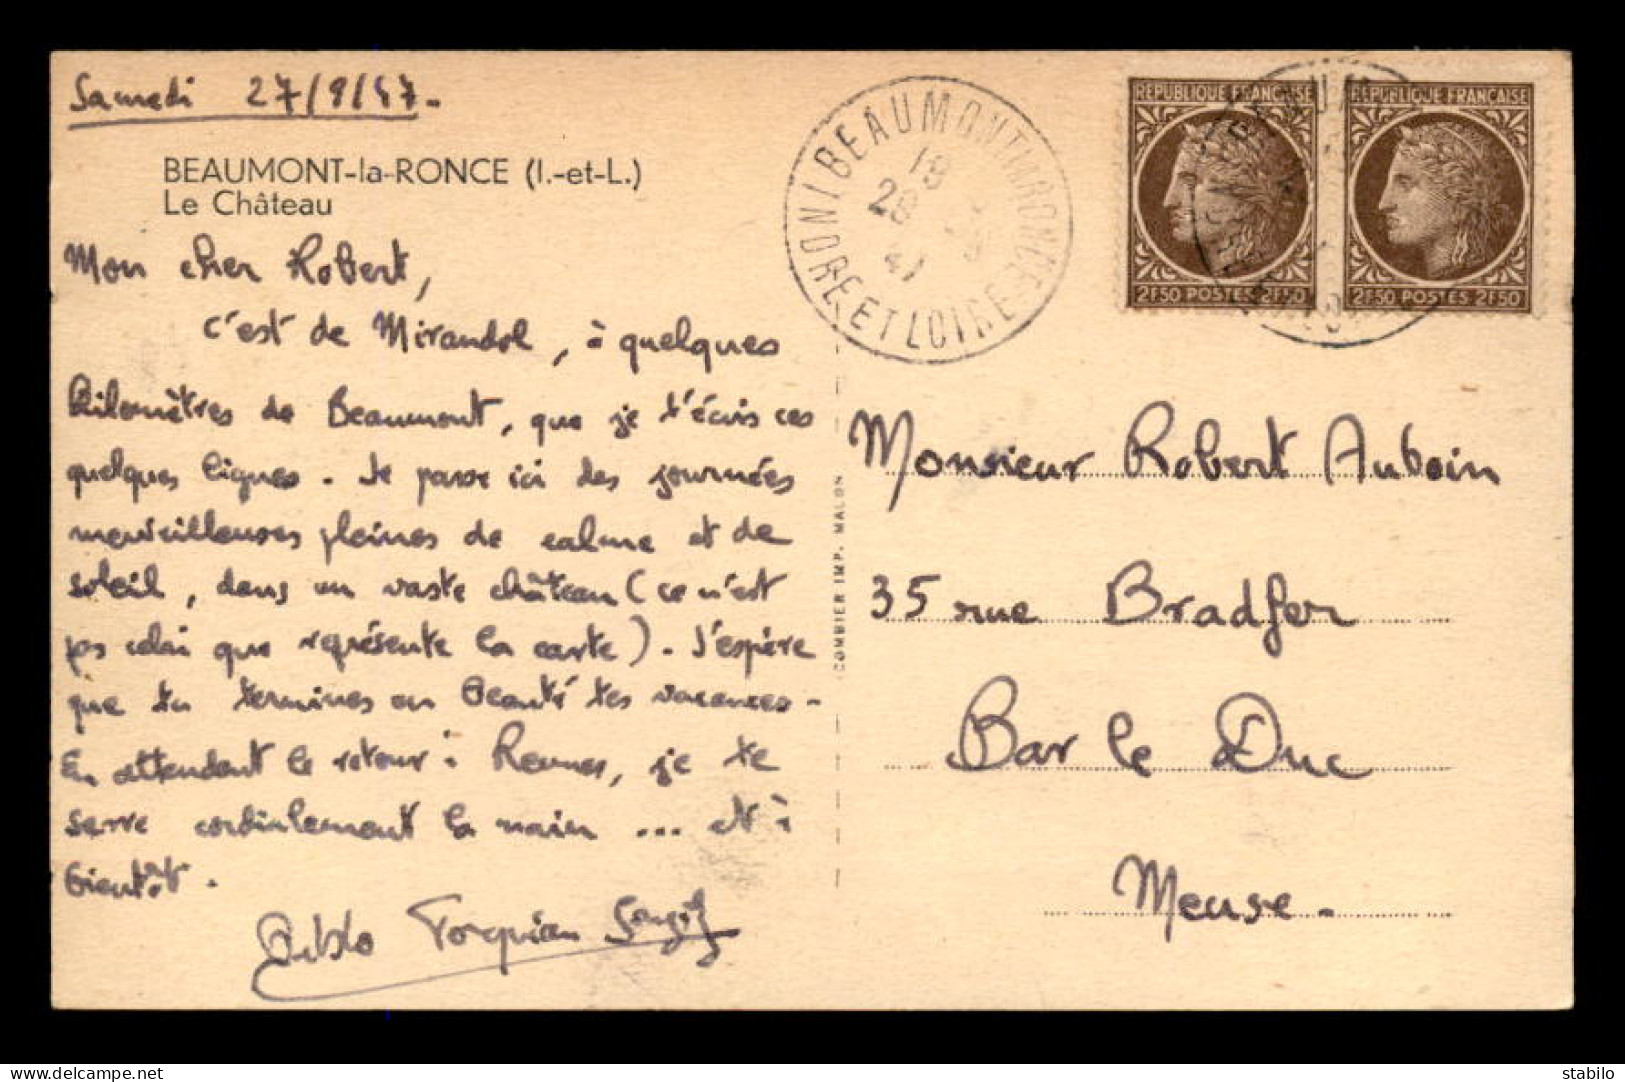 Samedi 27/9/47.
BEAUMONT-la-RONCE (I.-et-L.)
Le Château
Mon cher Robert,
c'est de Mirandol, à quelques
kilomètres de Beaumont, que je t'écris ces
quelques lignes. Je passe ici des journées
merveilleuses pleines de calme et de
soleil, dans un vaste château (ce n'est
pas celui que représente la carte). J'espère
que tu termines en beauté tes vacances.
En attendant le retour à Rennes, je te
serre cordialement la main ... et à
bientôt.
COMBIER IMP. MALON
BEAUMONT LA RONCE
INDRE ET LOIRE
18
28
47
REPUBLIQUE FRANÇAISE
2F50 POSTES 2F50
REPUBLIQUE FRANÇAISE
2F50 POSTES 2F50
Monsieur Robert Auboin
35 rue Bradfer
Bar le Duc
Meuse.
delcampe.net
stabilo